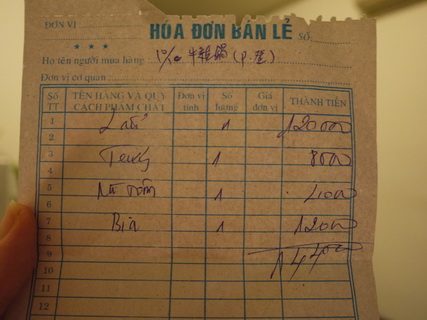 ĐƠN VỊ
HÓA ĐƠN BÁN LẺ SỐ:
★ ★ ★
Họ tên người mua hàng: 10/10 牛雜鍋
Đơn vị cơ quan:
Số TT TÊN HÀNG VÀ QUY CÁCH PHẨM CHẤT Đơn vị tính Số lượng Giá đơn vị THÀNH TIỀN
1 Lẩu 1 120000
2
3 1 8000
4
5 1 4000
6
7 Bia 1 12000
8
9 144000
10
11
12